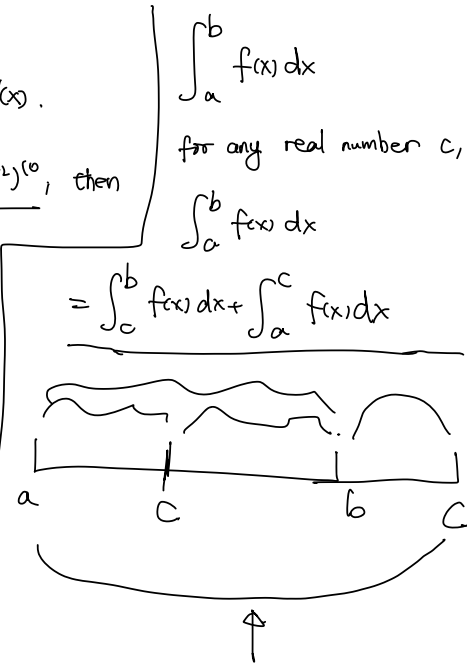 (x).
²)¹⁰, then
∫_a^b f(x) dx
for any real number c,
∫_a^b f(x) dx
= ∫_c^b f(x) dx + ∫_a^c f(x) dx
a c b c